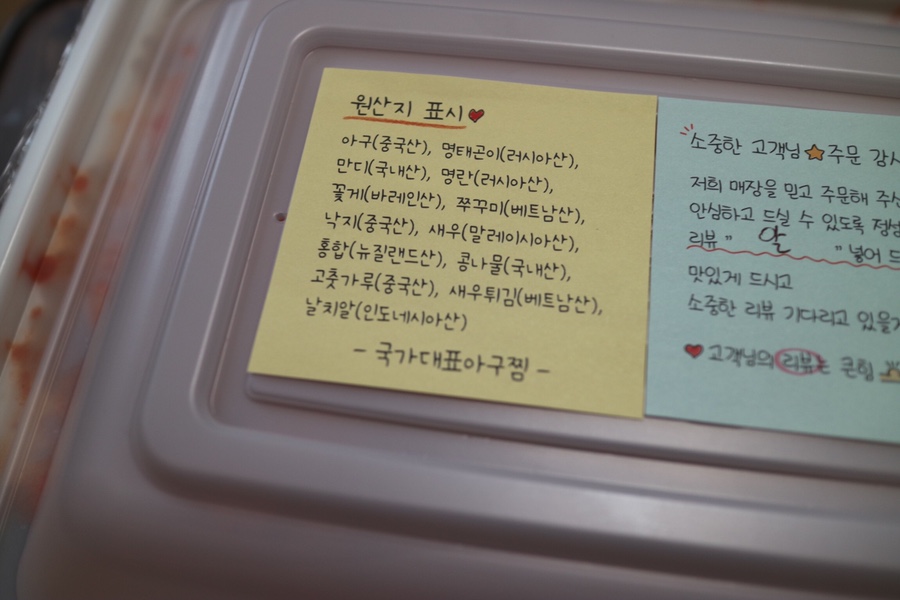 원산지 표시
아구(중국산), 명태곤이(러시아산),
만디(국내산), 명란(러시아산),
꽃게(바레인산), 쭈꾸미(베트남산),
낙지(중국산), 새우(말레이시아산),
홍합(뉴질랜드산), 콩나물(국내산),
고춧가루(중국산), 새우튀김(베트남산),
날치알(인도네시아산)
- 국가대표아구찜 -
소중한 고객님 주문 감사
저희 매장을 믿고 주문해 주신
안심하고 드실 수 있도록 정성
리뷰 " 알 " 넣어 드
맛있게 드시고
소중한 리뷰 기다리고 있을게
고객님의 리뷰는 큰힘